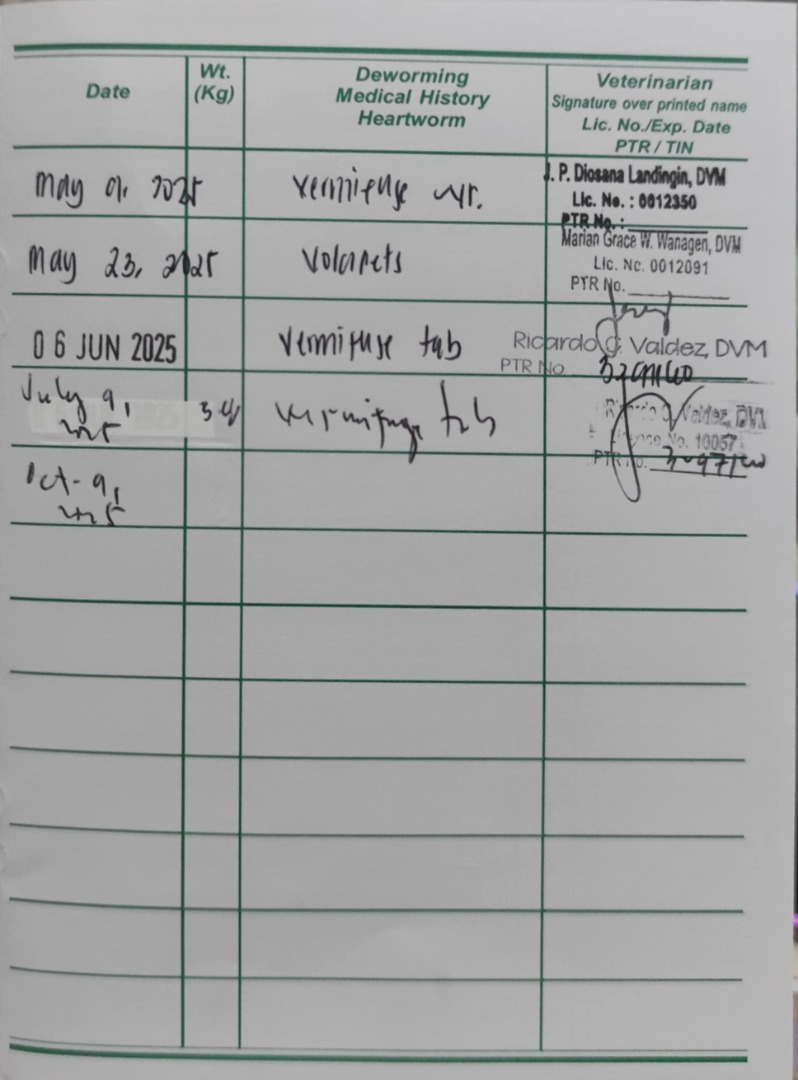 Date
Wt.
(Kg)
Deworming
Medical History
Heartworm
Veterinarian
Signature over printed name
Lic. No./Exp. Date
PTR / TIN
May 9, 2025
J. P. Diosana Landingin, DVM
Lic. No. : 0012350
PTR No. :
May 23, 2025
Marian Grace W. Wanagen, DVM
Lic. No. 0012091
PTR No.
06 JUN 2025
Vermifuge tab
Ricardo G. Valdez, DVM
PTR No
July 9,
2025
Vermifuge tab
Ricardo G. Valdez, DVM
License No. 10057
PTR No.
Oct- 9,
2025